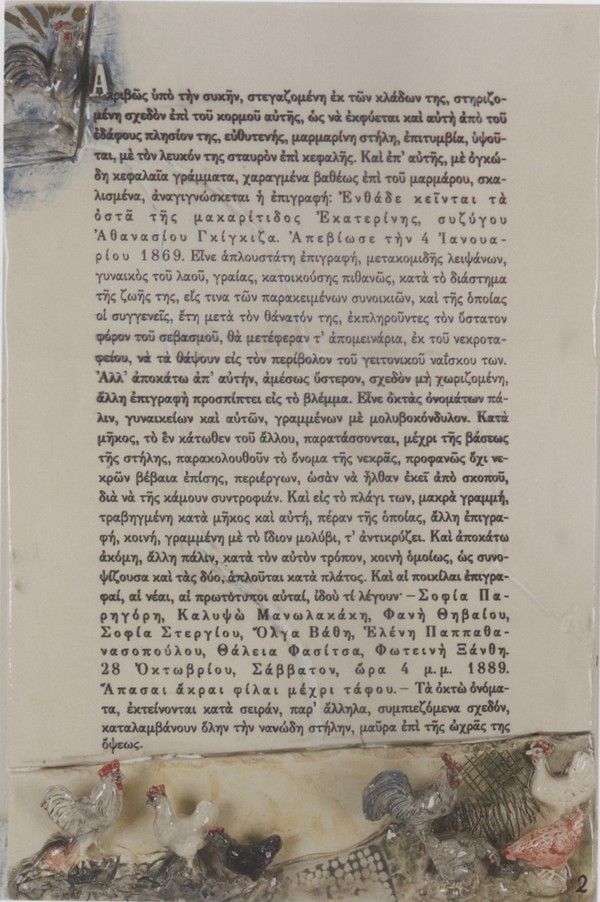 Ἀκριβῶς ὑπὸ τὴν συκῆν, στεγαζομένη ἐκ τῶν κλάδων της, στηριζο-
μένη σχεδὸν ἐπὶ τοῦ κορμοῦ αὐτῆς, ὡς νὰ ἐκφύεται καὶ αὐτὴ ἀπὸ τοῦ
ἐδάφους πλησίον της, εὐθυτενής, μαρμαρίνη στήλη, ἐπιτυμβία, ὑψοῦ-
ται, μὲ τὸν λευκόν της σταυρὸν ἐπὶ κεφαλῆς. Καὶ ἐπ' αὐτῆς, μὲ ὀγκώ-
δη κεφαλαῖα γράμματα, χαραγμένα βαθέως ἐπὶ τοῦ μαρμάρου, σκα-
λισμένα, ἀναγιγνώσκεται ἡ ἐπιγραφή: Ἐνθάδε κεῖνται τὰ
ὀστᾶ τῆς μακαρίτιδος Ἐκατερίνης, συζύγου
Ἀθανασίου Γκίγκιζα. Ἀπεβίωσε τὴν 4 Ἰανουα-
ρίου 1869. Εἶνε ἁπλουστάτη ἐπιγραφή, μετακομιδῆς λειψάνων,
γυναικὸς τοῦ λαοῦ, γραίας, κατοικούσης πιθανῶς, κατὰ τὸ διάστημα
τῆς ζωῆς της, εἴς τινα τῶν παρακειμένων συνοικιῶν, καὶ τῆς ὁποίας
οἱ συγγενεῖς, ἔτη μετὰ τὸν θάνατόν της, ἐκπληροῦντες τὸν ὕστατον
φόρον τοῦ σεβασμοῦ, θὰ μετέφεραν τ' ἀπομεινάρια, ἐκ τοῦ νεκροτα-
φείου, νὰ τὰ θάψουν εἰς τὸν περίβολον τοῦ γειτονικοῦ ναΐσκου των.
Ἀλλ' ἀποκάτω ἀπ' αὐτήν, ἀμέσως ὕστερον, σχεδὸν μὴ χωριζομένη,
ἄλλη ἐπιγραφὴ προσπίπτει εἰς τὸ βλέμμα. Εἶνε ὀκτὰς ὀνομάτων πά-
λιν, γυναικείων καὶ αὐτῶν, γραμμένων μὲ μολυβοκόνδυλον. Κατὰ
μῆκος, τὸ ἓν κάτωθεν τοῦ ἄλλου, παρατάσσονται, μέχρι τῆς βάσεως
τῆς στήλης, παρακολουθοῦν τὸ ὄνομα τῆς νεκρᾶς, προφανῶς ὄχι νε-
κρῶν βέβαια ἐπίσης, περιέργων, ὡσὰν νὰ ἦλθαν ἐκεῖ ἀπὸ σκοποῦ,
διὰ νὰ τῆς κάμουν συντροφιάν. Καὶ εἰς τὸ πλάγι των, μακρὰ γραμμή,
τραβηγμένη κατὰ μῆκος καὶ αὐτή, πέραν τῆς ὁποίας, ἄλλη ἐπιγρα-
φή, κοινή, γραμμένη μὲ τὸ ἴδιον μολύβι, τ' ἀντικρύζει. Καὶ ἀποκάτω
ἀκόμη, ἄλλη πάλιν, κατὰ τὸν αὐτὸν τρόπον, κοινὴ ὁμοίως, ὡς συνο-
ψίζουσα καὶ τὰς δύο, ἁπλοῦται κατὰ πλάτος. Καὶ αἱ ποικίλαι ἐπιγρα-
φαί, αἱ νέαι, αἱ πρωτότυποι αὐταί, ἰδοὺ τί λέγουν· — Σοφία Πα-
ρηγόρη, Καλυψὼ Μανωλακάκη, Φανὴ Θηβαίου,
Σοφία Στεργίου, Ὄλγα Βάθη, Ἑλένη Παππαθα-
νασοπούλου, Θάλεια Φασίτσα, Φωτεινὴ Ξάνθη.
28 Ὀκτωβρίου, Σάββατον, ὥρα 4 μ.μ. 1889.
Ἅπασαι ἄκραι φίλαι μέχρι τάφου. — Τὰ ὀκτὼ ὀνόμα-
τα, ἐκτείνονται κατὰ σειράν, παρ' ἄλληλα, συμπιεζόμενα σχεδόν,
καταλαμβάνουν ὅλην τὴν νανώδη στήλην, μαῦρα ἐπὶ τῆς ὠχρᾶς της
ὄψεως.
2